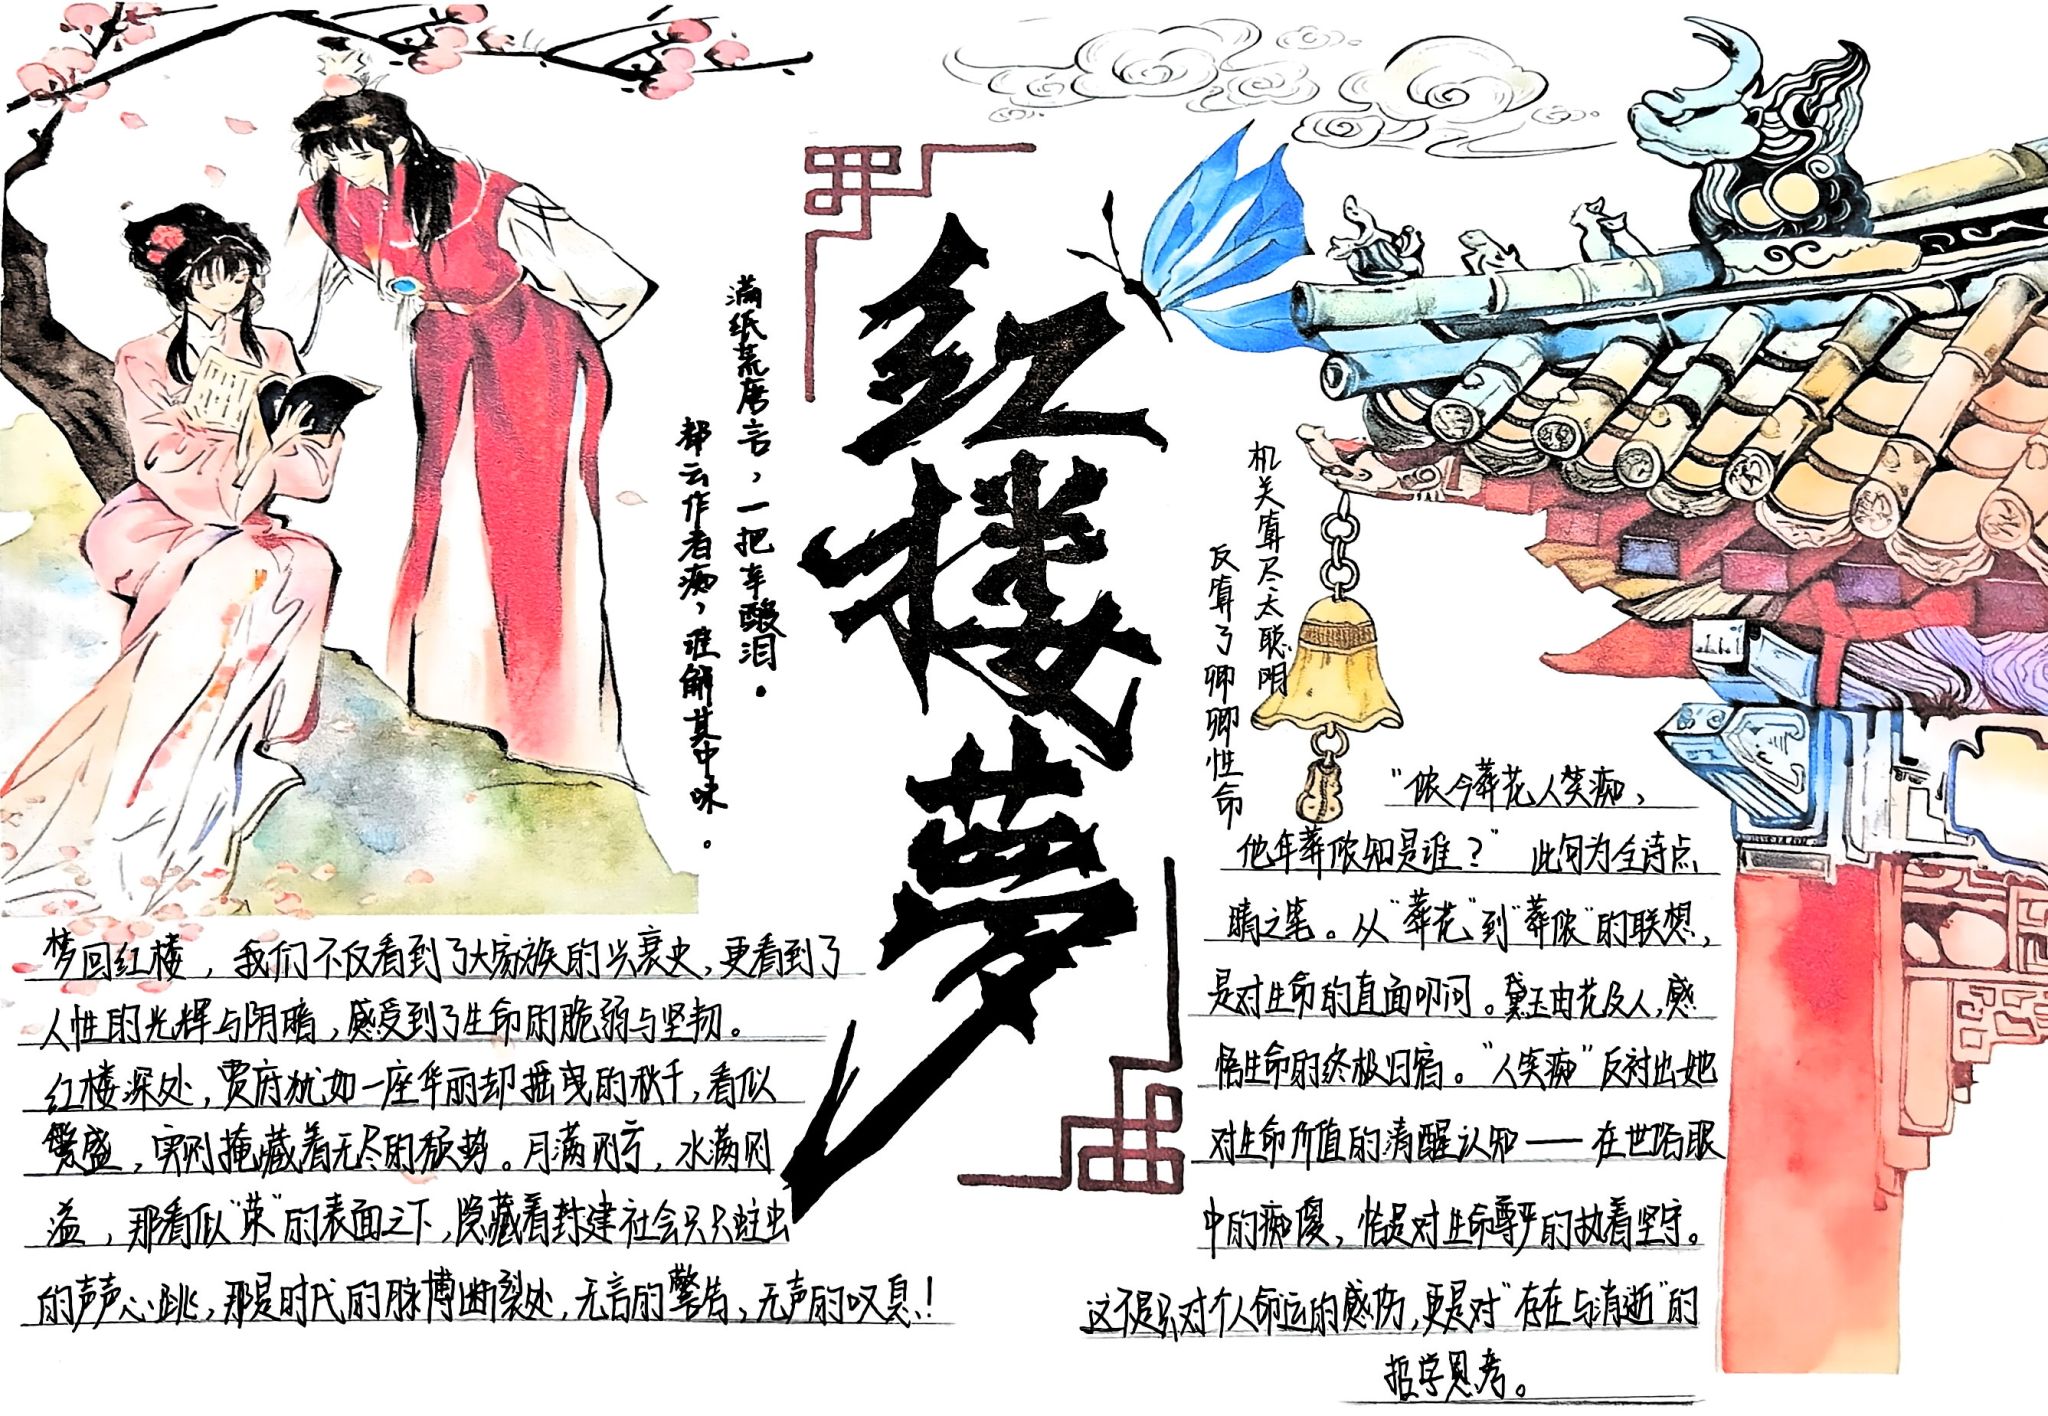 红楼梦
满纸荒唐言，一把辛酸泪。
都云作者痴，谁解其中味。
机关算尽太聪明
反算了卿卿性命
梦回红楼，我们不仅看到了大家族的兴衰史，更看到了
人性的光辉与阴暗，感受到了生命的脆弱与坚韧。
红楼深处，贾府犹如一座华丽却摇曳的秋千，看似
繁盛，实则掩藏着无尽的颓势。月满则亏，水满则
溢，那看似“荣”的表面之下，隐藏着封建社会只只蛀虫
的声声心跳，那是时代的脉搏断裂处，无言的警告，无声的叹息！
“侬今葬花人笑痴，
他年葬侬知是谁？”此句为全诗点
睛之笔。从“葬花”到“葬侬”的联想，
是对生命的直面叩问。黛玉由花及人，感
悟生命的终极归宿。“人笑痴”反衬出她
对生命价值的清醒认知——在世俗眼
中的痴傻，恰是对生命尊严的执着坚守。
这不是只对个人命运的感伤，更是对“存在与消逝”的
哲学思考。